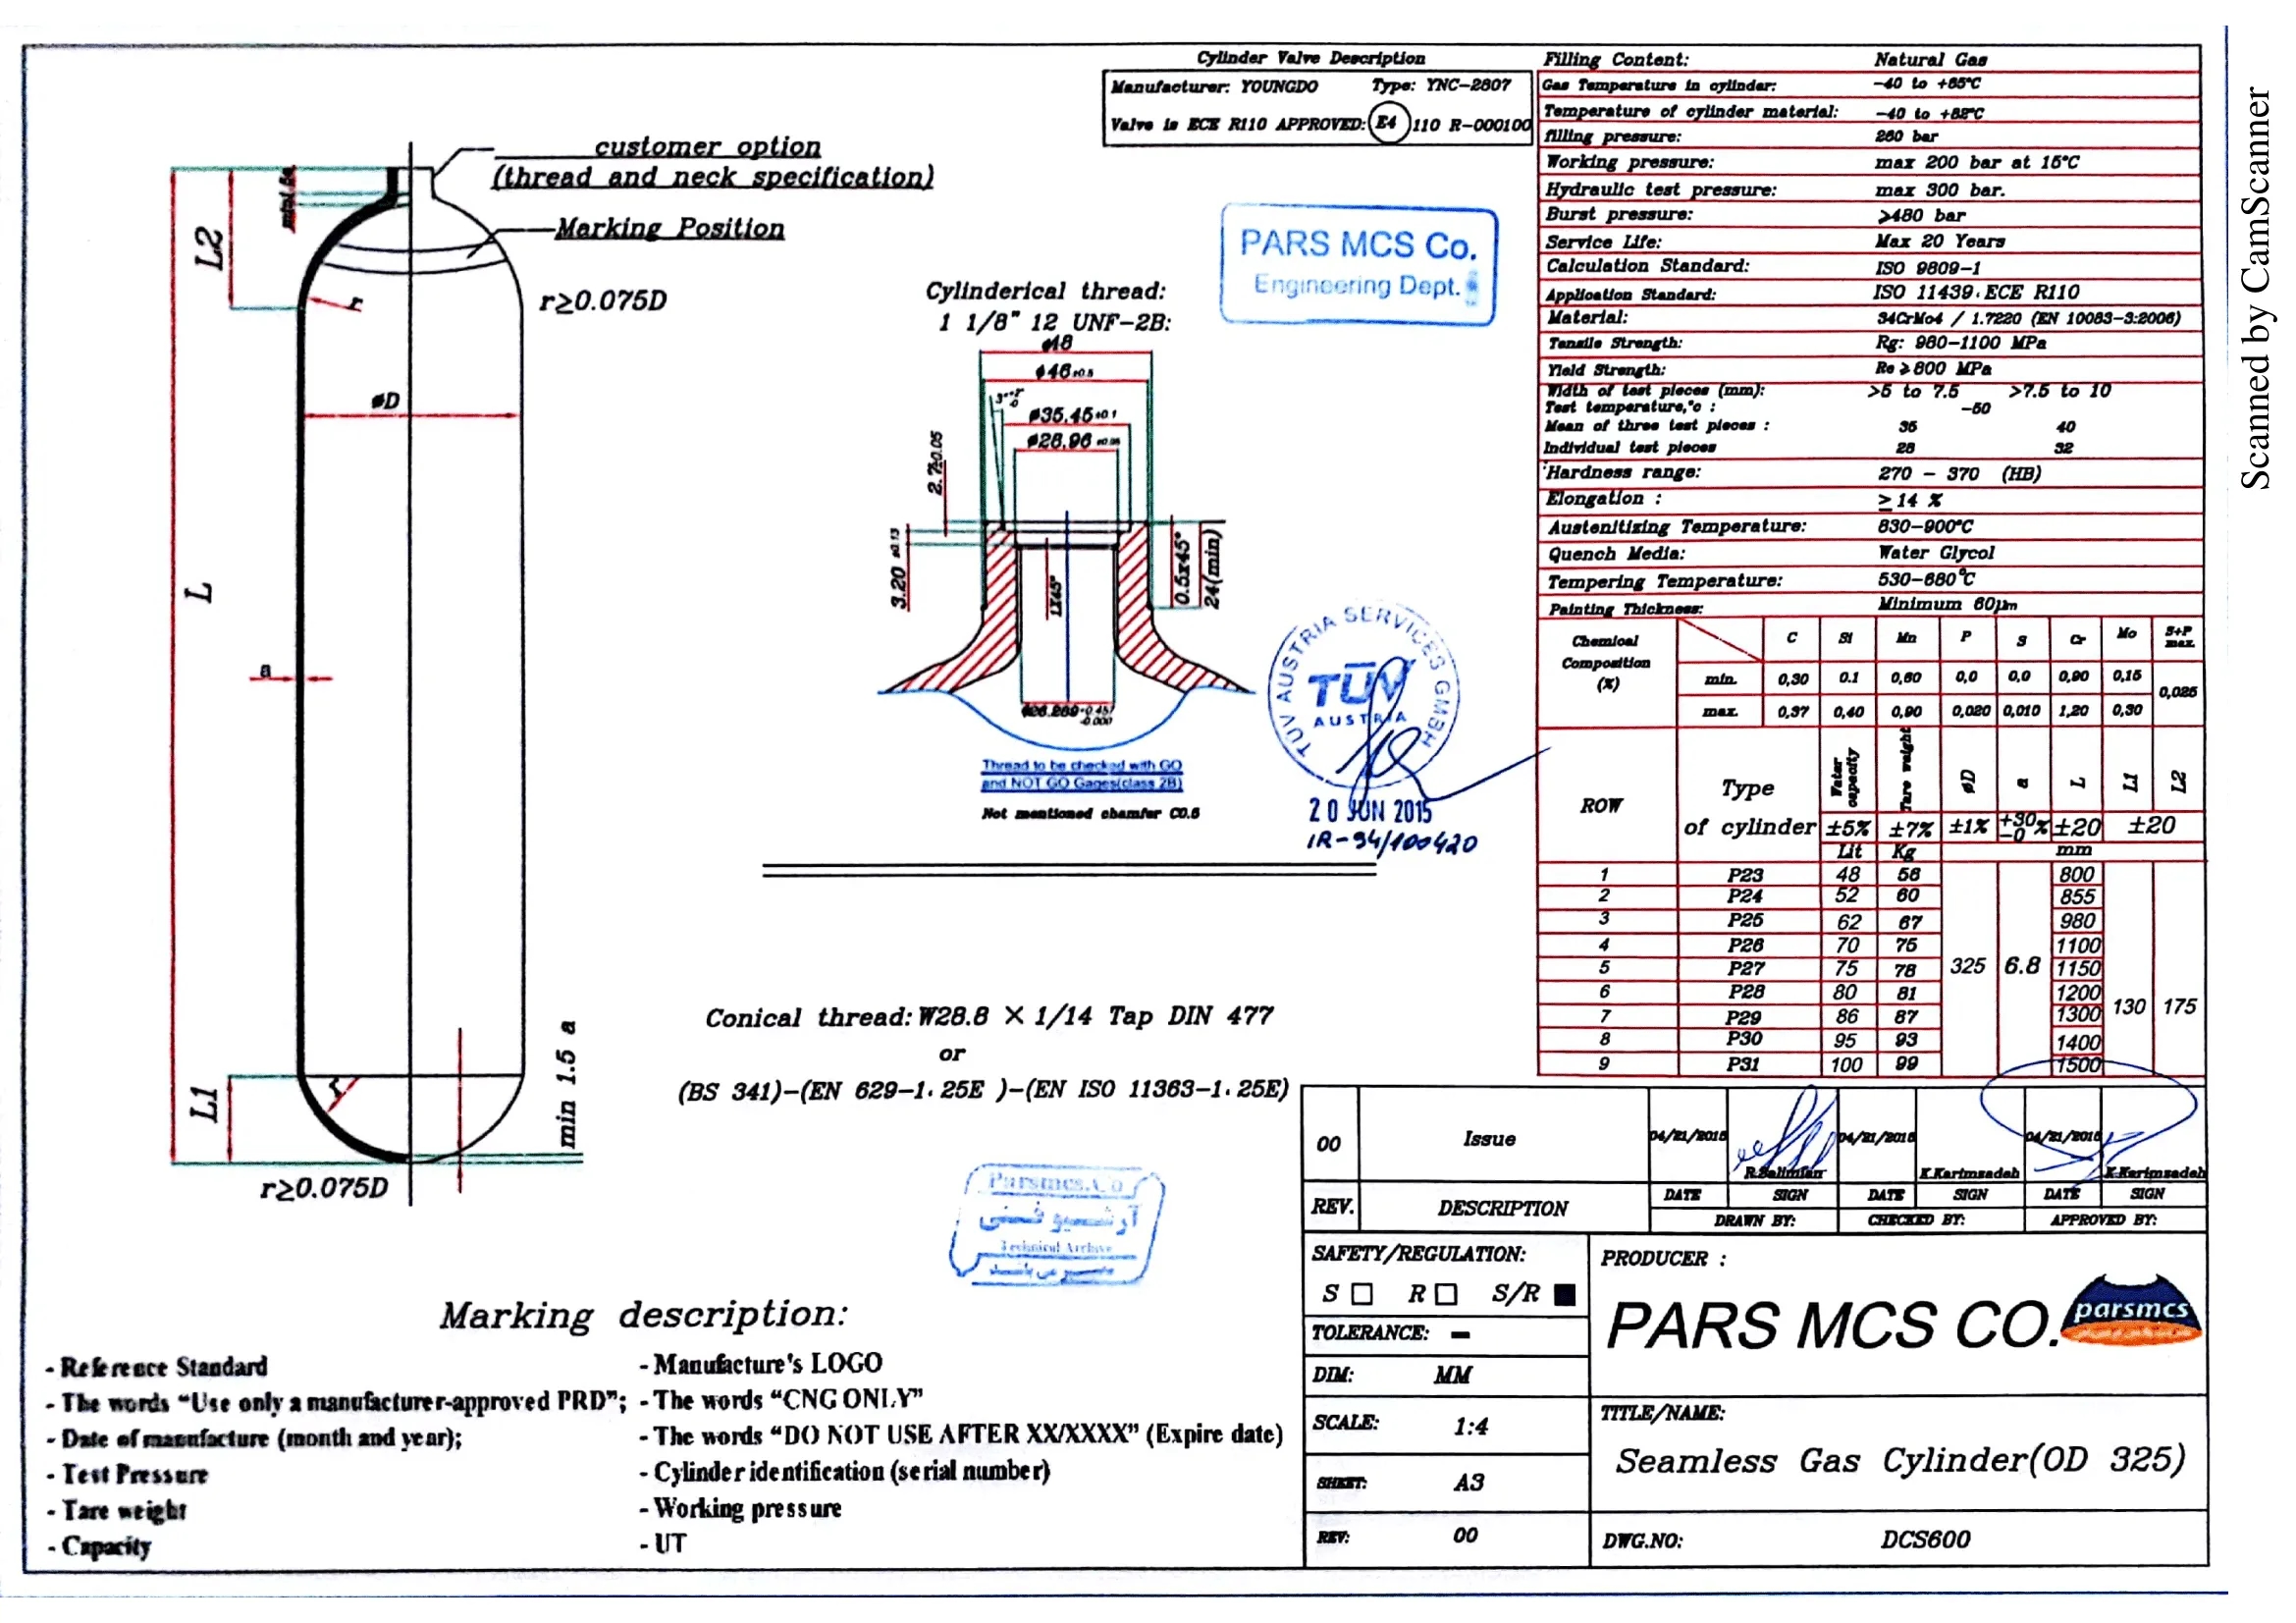 Cylinder Valve Description
Manufacturer: YOUNGDO Type: YNC-2807
Valve is ECE R110 APPROVED: E4 110 R-000100
customer option
(thread and neck specification)
Marking Position
L2
r
r≥0.075D
øD
L
a
L1
r≥0.075D
min 1.5 a
PARS MCS Co.
Engineering Dept.
Cylinderical thread:
1 1/8" 12 UNF-2B:
ø48
ø46±0.5
ø35.45±0.1
ø28.96
2.7±0.05
3.20 ±0.13
1X45°
0.5x45°
24(min)
Thread to be checked with GO
and NOT GO Gages(class 2B)
Not mentioned chamfer C0.6
TÜV AUSTRIA SERVICES GMBH
TÜV
AUSTRIA
20 JUN 2015
IR-94/100420
Conical thread: W28.8 X 1/14 Tap DIN 477
or
(BS 341)-(EN 629-1. 25E )-(EN ISO 11363-1. 25E)
Parsmcs.Co
آرشیو فنی
Technical Archive
Marking description:
- Reference Standard
- The words "Use only a manufacturer-approved PRD";
- Date of manufacture (month and year);
- Test Pressure
- Tare weight
- Capacity
- Manufacture's LOGO
- The words "CNG ONLY"
- The words "DO NOT USE AFTER XX/XXXX" (Expire date)
- Cylinder identification (serial number)
- Working pressure
- UT
Filling Content: Natural Gas
Gas Temperature in cylinder: -40 to +65°C
Temperature of cylinder material: -40 to +82°C
filling pressure: 260 bar
Working pressure: max 200 bar at 15°C
Hydraulic test pressure: max 300 bar.
Burst pressure: ≥480 bar
Service Life: Max 20 Years
Calculation Standard: ISO 9809-1
Application Standard: ISO 11439. ECE R110
Material: 34CrMo4 / 1.7220 (EN 10083-3:2006)
Tensile Strength: Rg: 980-1100 MPa
Yield Strength: Re ≥800 MPa
Width of test pieces (mm): >5 to 7.5 >7.5 to 10
Test temperature,°c : -50
Mean of three test pieces : 35 40
Individual test pieces 28 32
Hardness range: 270 - 370 (HB)
Elongation : ≥14 %
Austenitizing Temperature: 830-900°C
Quench Media: Water Glycol
Tempering Temperature: 530-680°C
Painting Thickness: Minimum 60µm
Chemical Composition (%) C Si Mn P S Cr Mo S+P max.
min. 0,30 0.1 0,60 0,0 0,0 0,90 0,15 0,025
max. 0,37 0,40 0,90 0,020 0,010 1,20 0,30
ROW Type of cylinder Water capacity Tare weight øD a L L1 L2
±5% ±7% ±1% +30 -0 % ±20 ±20
Lit Kg mm
1 P23 48 56 800
2 P24 52 60 855
3 P25 62 67 980
4 P26 70 75 1100
5 P27 75 78 325 6.8 1150
6 P28 80 81 1200
7 P29 86 87 1300 130 175
8 P30 95 93 1400
9 P31 100 99 1500
00 Issue 04/21/2015 R.Salimian 04/21/2015 K.Karimzadeh 04/21/2015 K.Karimzadeh
REV. DESCRIPTION DATE SIGN DATE SIGN DATE SIGN
DRAWN BY: CHECKED BY: APPROVED BY:
SAFETY/REGULATION:
S R S/R
TOLERANCE: -
DIM: MM
SCALE: 1:4
SHEET: A3
REV: 00
PRODUCER :
PARS MCS CO.
parsmcs
TITLE/NAME:
Seamless Gas Cylinder(OD 325)
DWG.NO: DCS600
Scanned by CamScanner